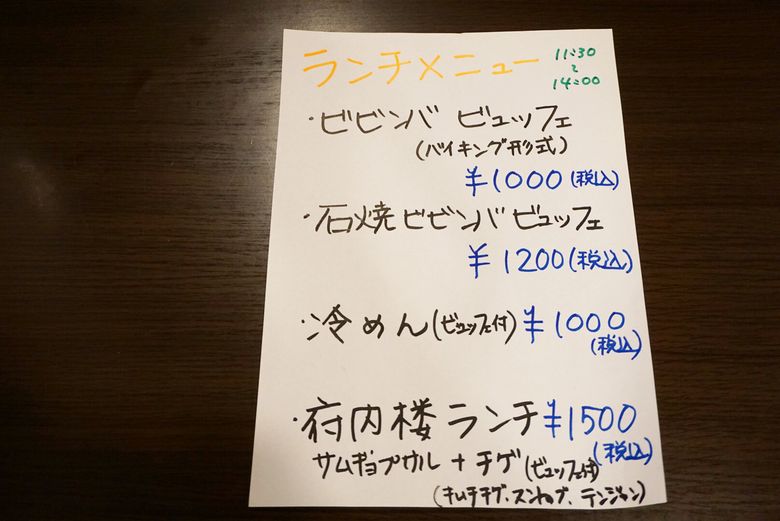 ランチメニュー 11:30
〜
14:00
・ビビンバ ビュッフェ
(バイキング形式)
¥1000(税込)
・石焼ビビンバビュッフェ
¥1200(税込)
・冷めん(ビュッフェ付)¥1000
(税込)
・府内楼ランチ¥1500
(税込)
サムギョプサル+チゲ(ビュッフェ付)
(キムチチゲ、スンドゥブ、テンジャン)